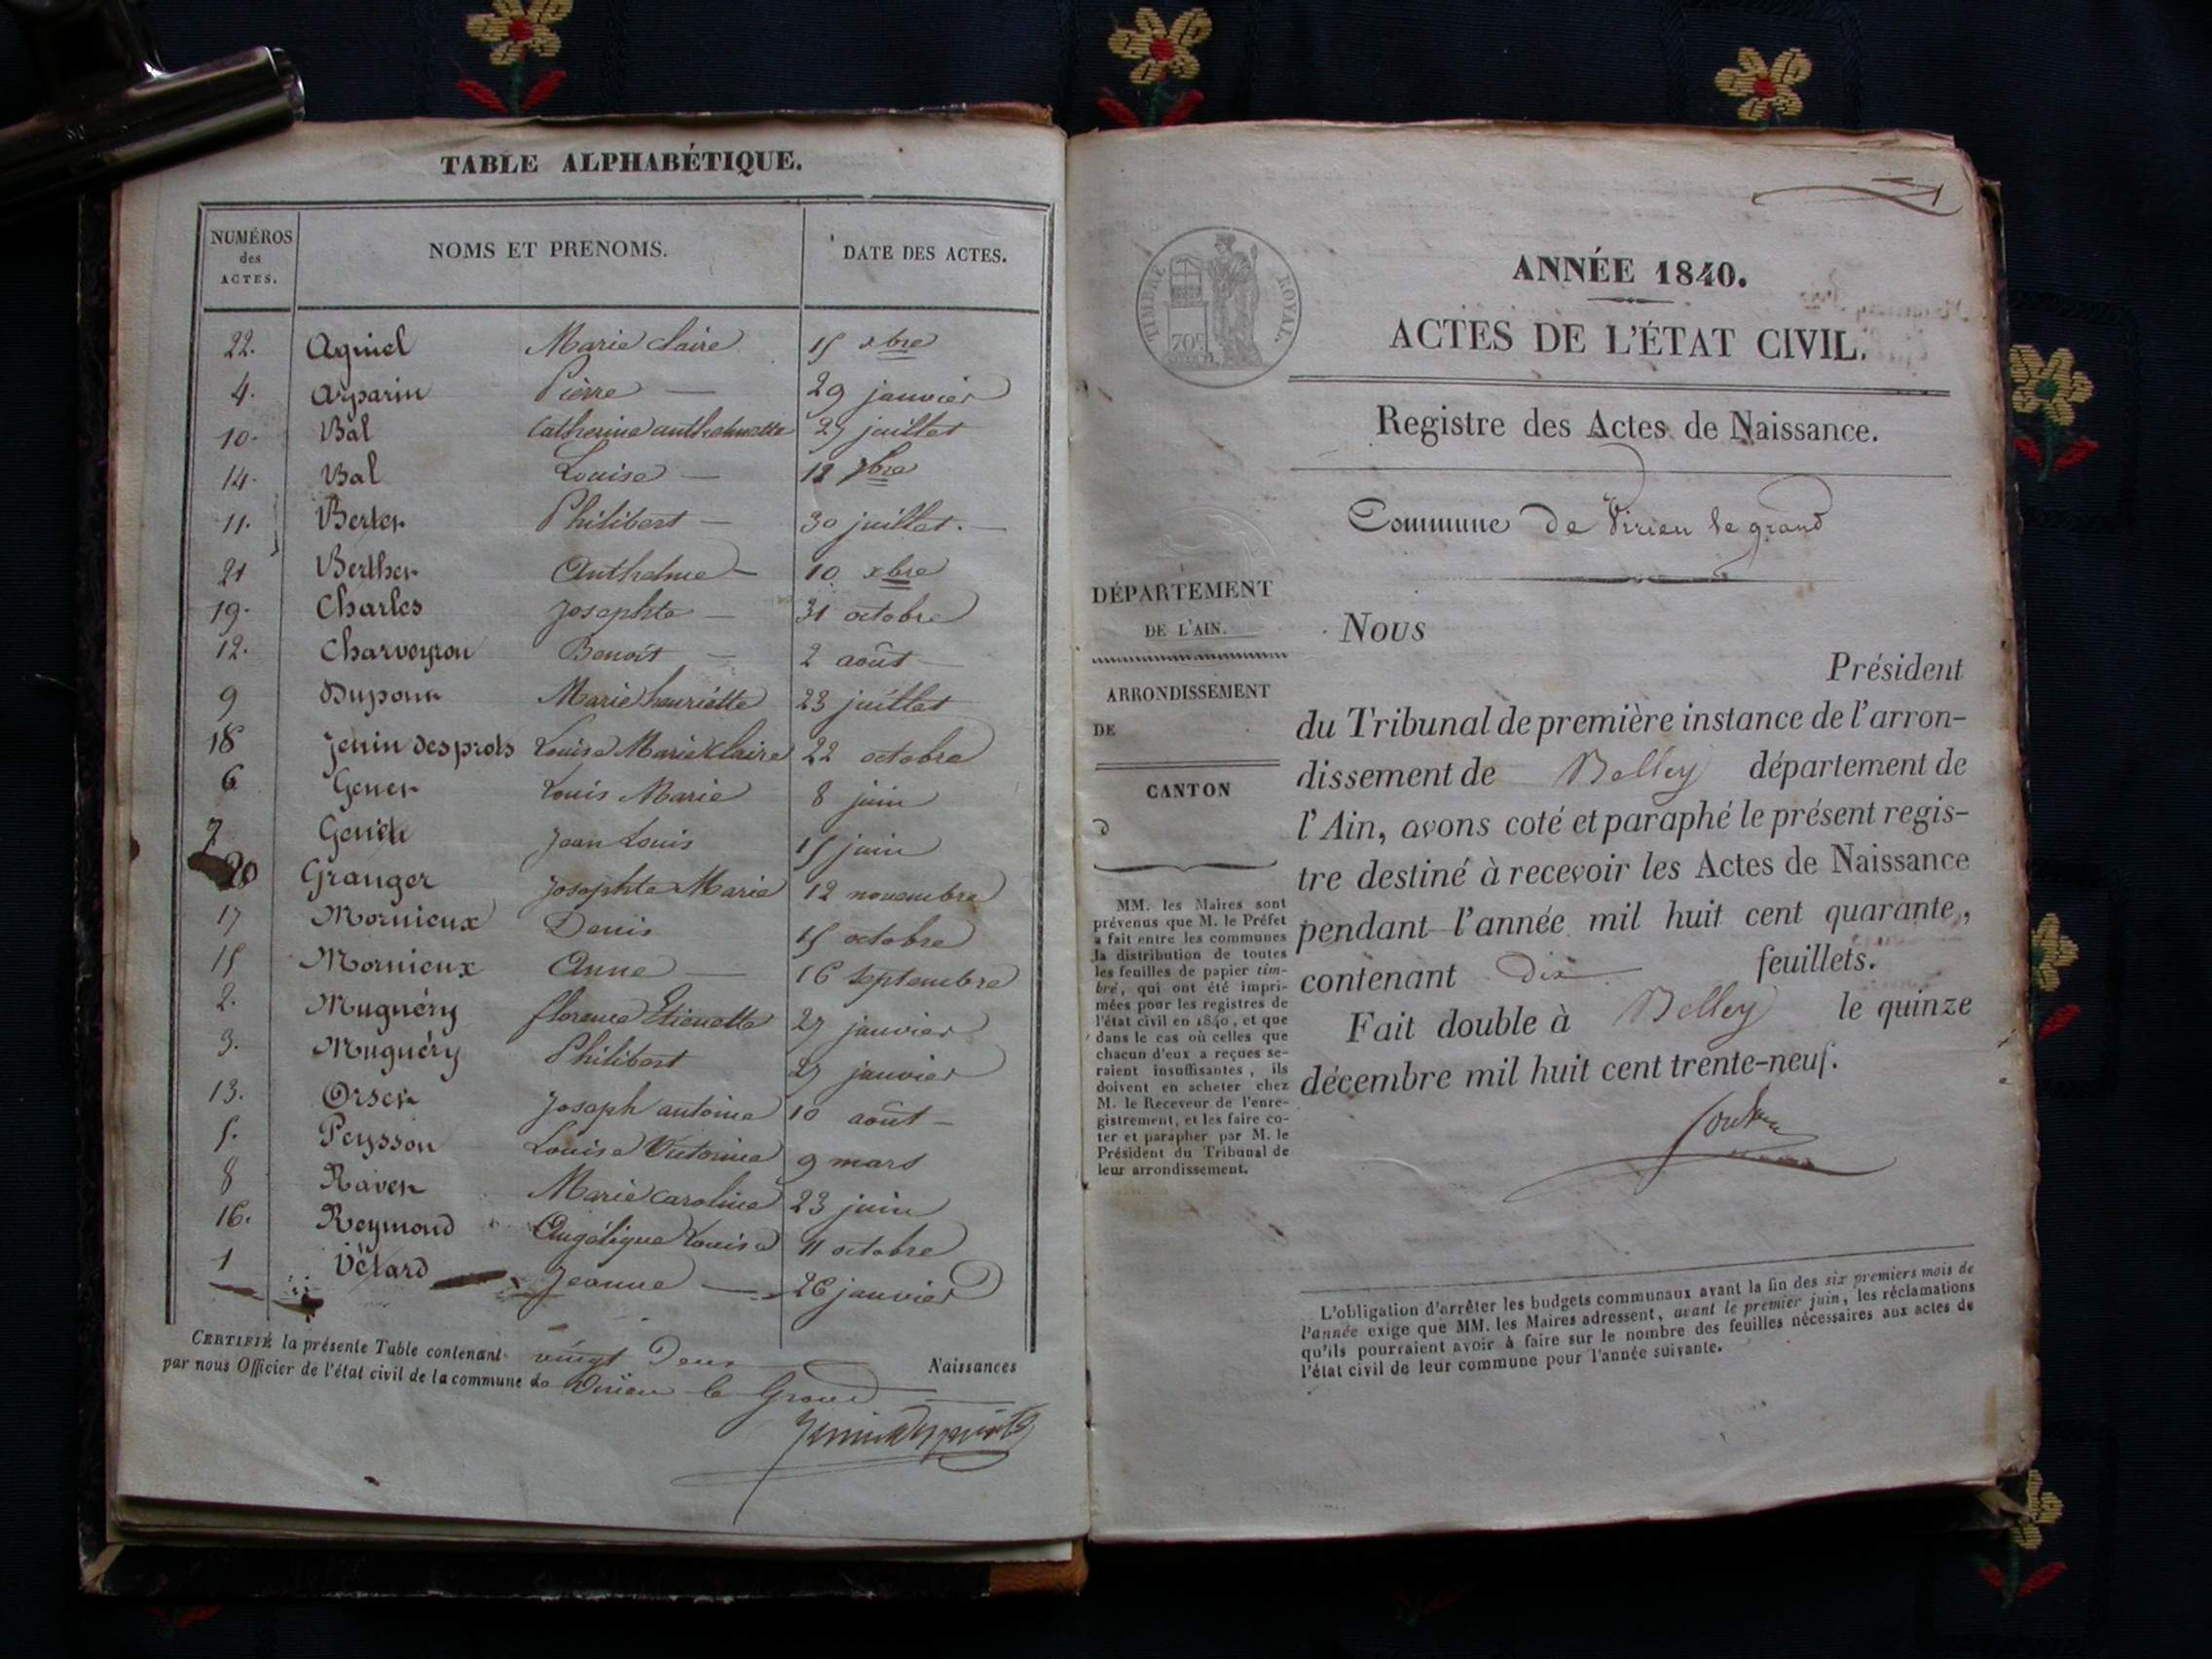 TABLE ALPHABÉTIQUE.
NUMÉROS des ACTES. NOMS ET PRENOMS. DATE DES ACTES.
22. Aguiel Marie Claire 15 xbre
4. Arparin Pierre 29 janvier
10. Bal Catherine anthelmette 27 juillet
14. Bal Louise 12 7bre
11. Berter Philibert 30 juillet.
21 Berther Anthelme 10 xbre
19. Charles Josephte 31 octobre
12. Charveyron Benoit 2 août
9 Dupont Marie henriette 23 juillet
18 Jenin desprots Louise Marie Claire 22 octobre
6 Gener Louis Marie 8 juin
7 Jean Louis 15 juin
20 Granger Josephte Marie 12 novembre
17 Mornieux Denis 15 octobre
15 Mornieux Anne 16 septembre
2. Muguéry florence Etienette 27 janvier
3. Muguéry Philibert 27 janvier
13. Orser Joseph antoine 10 août
5. Peysson Louise Victorine 9 mars
8 Raver Marie caroline 23 juin
16. Reymond Angélique Louise 11 octobre
1 Vétard Jeanne 26 janvier
CERTIFIÉ la présente Table contenant vingt Deux Naissances
par nous Officier de l'état civil de la commune de Virieu le Grand
Jenin desprots
TIMBRE ROYAL.
70c
1
ANNÉE 1840.
ACTES DE L'ÉTAT CIVIL.
Registre des Actes de Naissance.
Commune de Virieu le grand
DÉPARTEMENT
DE L'AIN.
ARRONDISSEMENT
DE
CANTON
d
MM. les Maires sont
prévenus que M. le Préfet
a fait entre les communes
la distribution de toutes
les feuilles de papier tim-
bré, qui ont été impri-
mées pour les registres de
l'état civil en 1840, et que
dans le cas où celles que
chacun d'eux a reçues se-
raient insuffisantes, ils
doivent en acheter chez
M. le Receveur de l'enre-
gistrement, et les faire co-
ter et parapher par M. le
Président du Tribunal de
leur arrondissement.
Nous
Président
du Tribunal de première instance de l'arron-
dissement de Belley département de
l'Ain, avons coté et paraphé le présent regis-
tre destiné à recevoir les Actes de Naissance
pendant l'année mil huit cent quarante,
contenant dix feuillets.
Fait double à Belley le quinze
décembre mil huit cent trente-neuf.
L'obligation d'arrêter les budgets communaux avant la fin des six premiers mois de
l'année exige que MM. les Maires adressent, avant le premier juin, les réclamations
qu'ils pourraient avoir à faire sur le nombre des feuilles nécessaires aux actes de
l'état civil de leur commune pour l'année suivante.